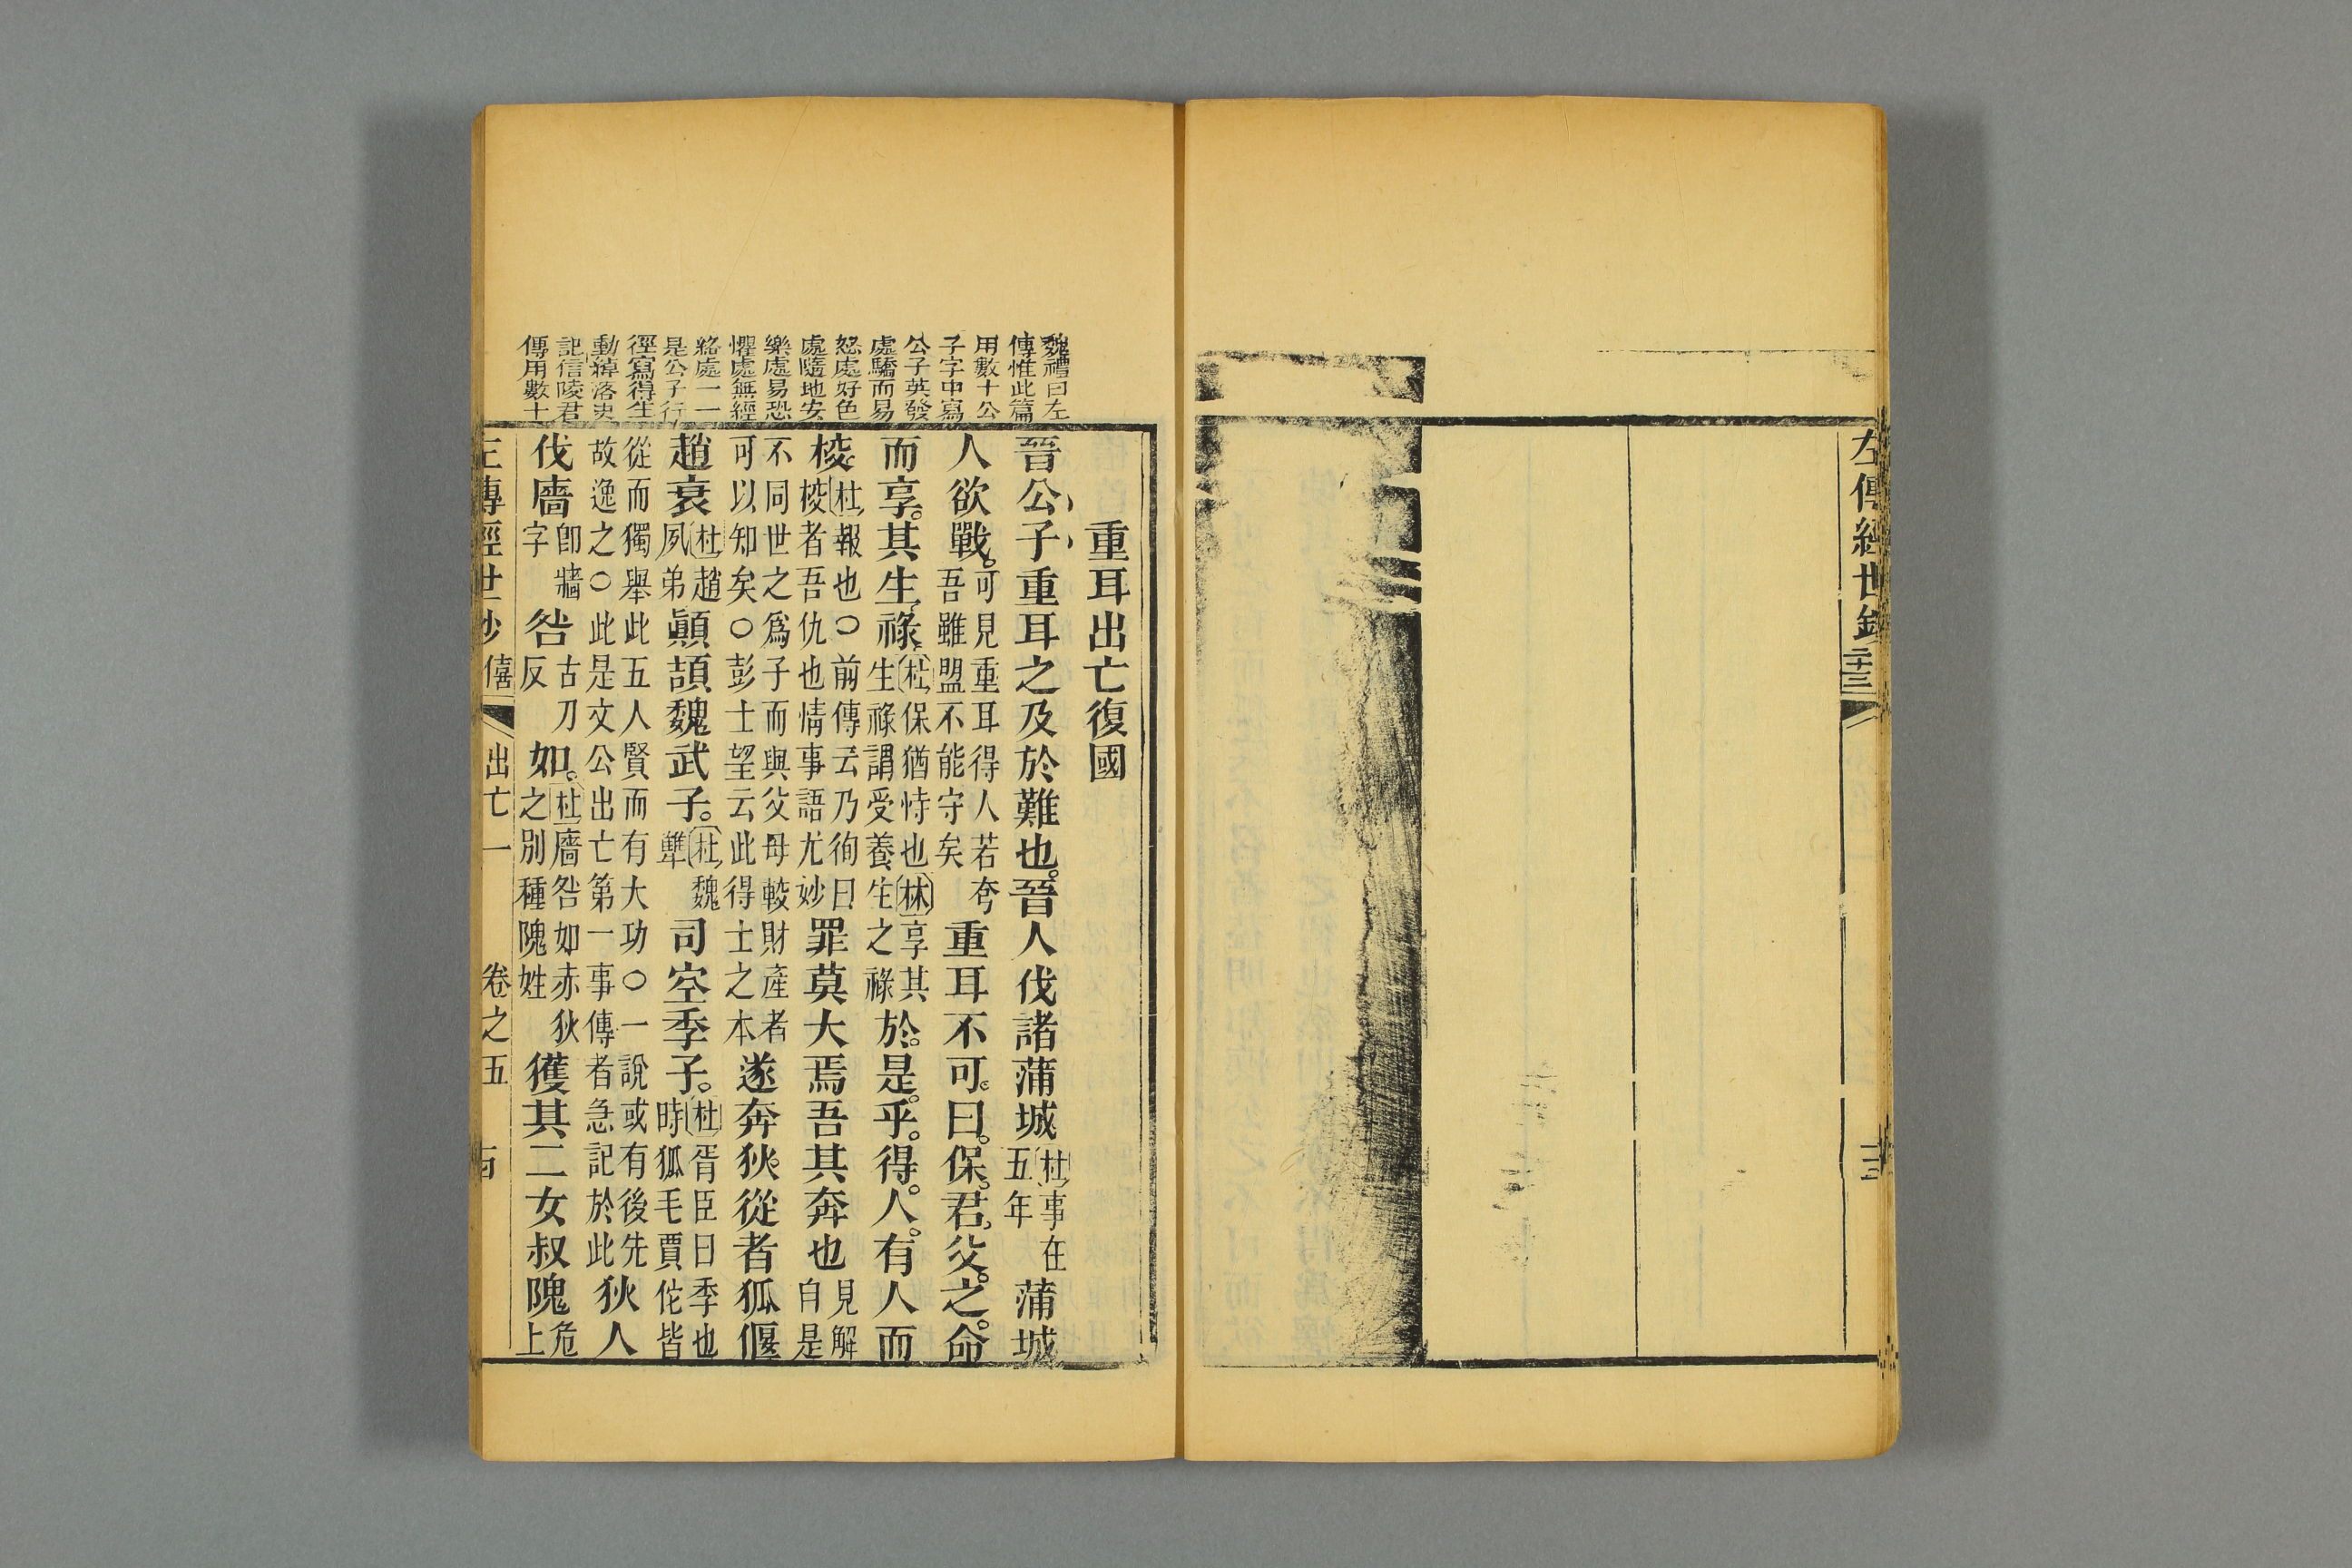 左傳經世鈔
二十三
十三
魏禮曰左
傳惟此篇
用數十公
子字中寫
公子英發
處驕而易
怒處好色
處隨地安
樂處易恐
懼處無經
綹處一一
是公子行
徑寫得生
動綽落史
記信陵君
傳用數十
重耳出亡復國
晉公子重耳之及於難也晉人伐諸蒲城
杜事在
五年
蒲城
人欲戰
可見重耳得人若夸
吾雖盟不能守矣
重耳不可曰保君父之命
而享其生祿
杜保猶恃也林享其
生祿謂受養生之祿
於是乎得人有人而
校
杜報也〇前傳云乃徇曰
校者吾仇也情事語尤妙
罪莫大焉吾其奔也
見解
自是
不同世之爲子而與父母較財產者
可以知矣〇彭士望云此得士之本
遂奔狄從者狐偃
趙衰
杜趙
夙弟
顚頡魏武子
杜魏
犫
司空季子
杜胥臣曰季也
時狐毛賈佗皆
從而獨舉此五人賢而有大功〇一說或有後先
故逸之〇此是文公出亡第一事傳者急記於此
狄人
伐廧
卽牆
字
咎
古刀
反
如
杜廧咎如赤狄
之別種隗姓
獲其二女叔隗
危
上
左傳經世鈔
僖
出亡一
卷之五